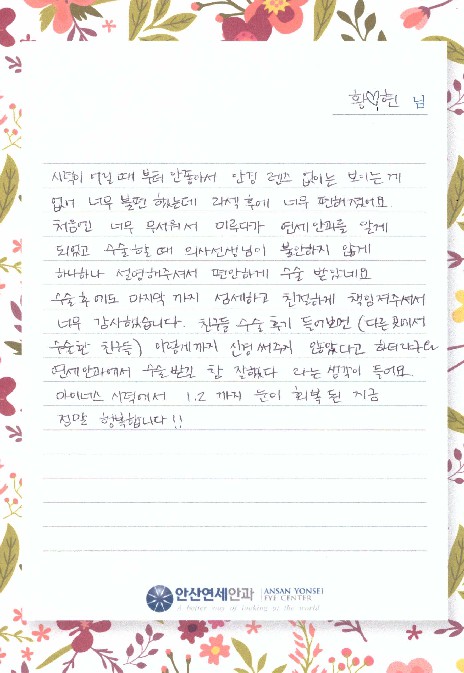 황♡현 님
시력이 어릴 때 부터 안좋아서 안경 렌즈 없이는 보이는게
없어 너무 불편 했는데 라섹 후에 너무 편해졌어요
처음엔 너무 무서워서 미루다가 연세안과를 알게
되었고 수술 할 때 의사선생님이 불안하지 않게
하나하나 설명해주셔서 편안하게 수술 받았네요
수술 후에도 마지막 까지 섬세하고 친절하게 책임져주셔서
너무 감사했습니다. 친구들 수술 후기 들어보면 (다른 곳에서
수술한 친구들) 이렇게까지 신경써주지 않았다고 하더라구요
연세안과에서 수술받길 참 잘했다 라는 생각이 들어요.
마이너스 시력에서 1.2 까지 눈이 회복 된 지금
정말 행복합니다!!
안산연세안과 ANSAN YONSEI
EYE CENTER
A better way of looking at the world